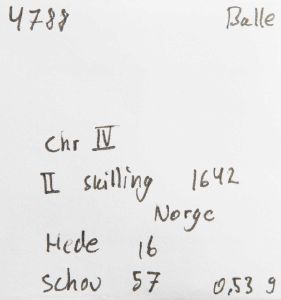 4788 Balle
Chr IV
II skilling 1642
Norge
Hede 16
Schou 57 0,53 g